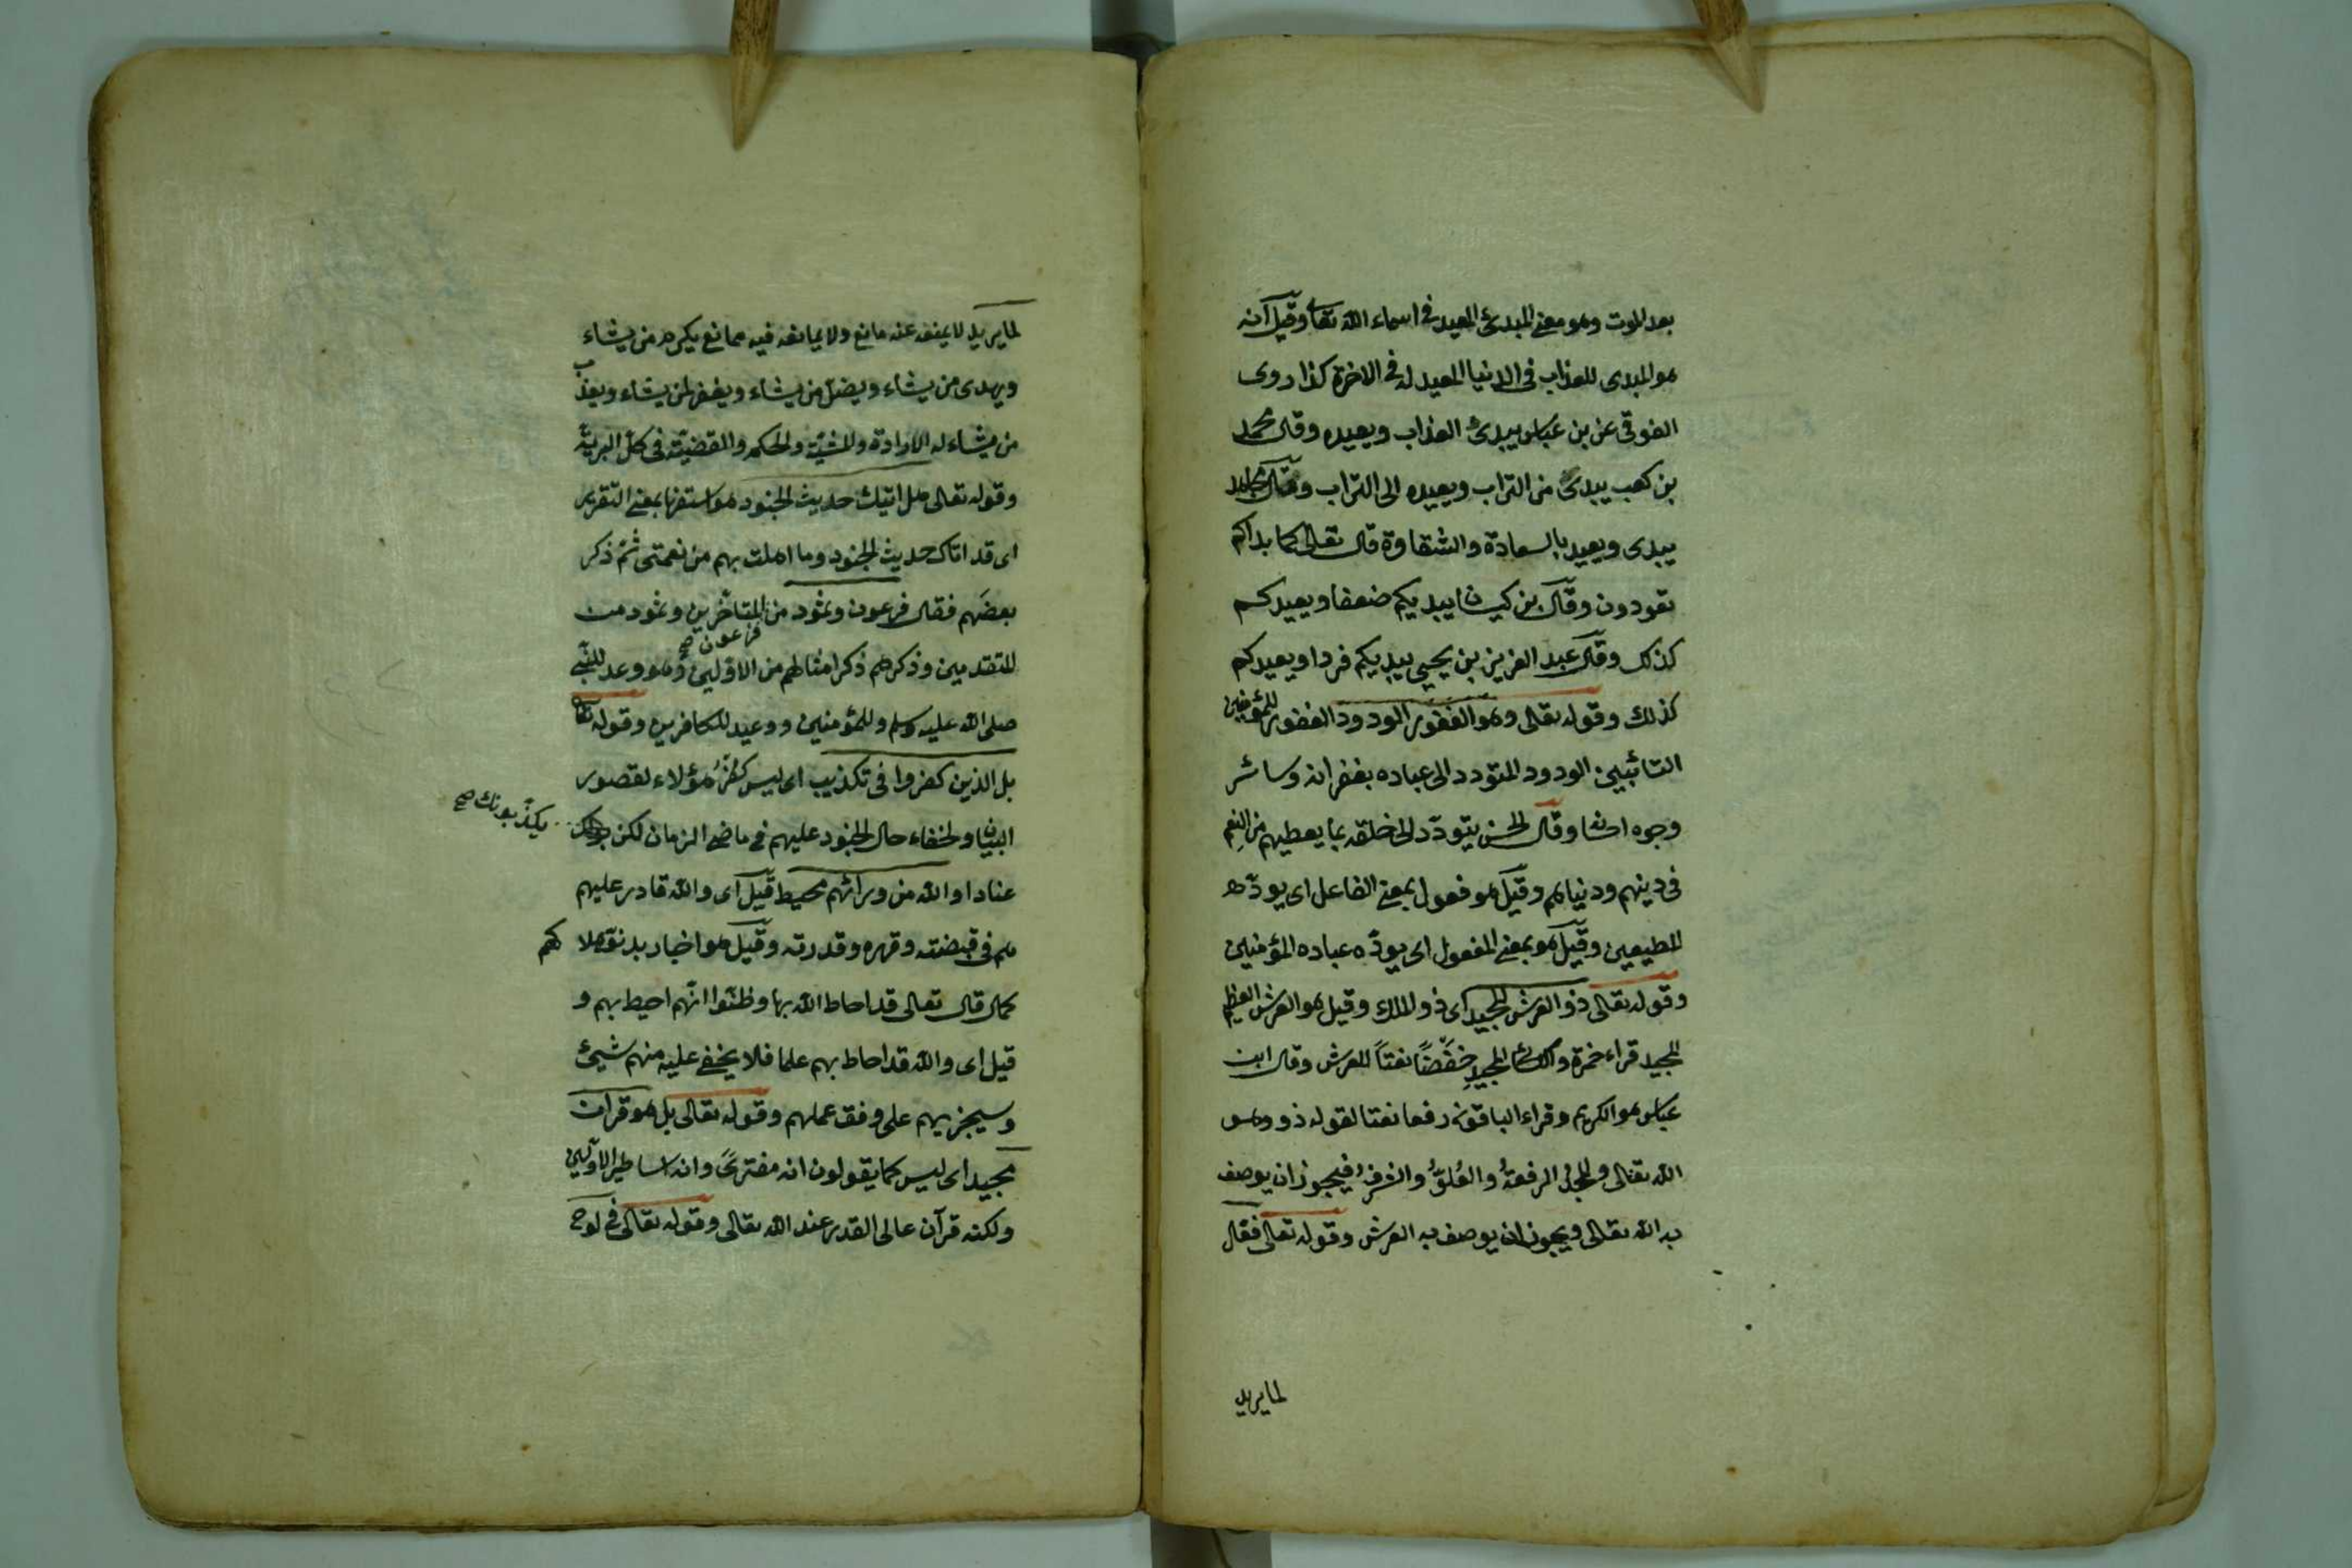 بعد الموت وهو معنى المبدئ المعيد فى اسماء الله تعالى وقيل انه
هو المبدى للعذاب فى الدنيا المعيد له فى الاخرة كذا روى
العوفى عن بن عباس يبدئ العذاب ويعيده وقال محمد
بن كعب يبدئ من التراب ويعيده الى التراب وقال
يبدى ويعيد بالسعادة والشقاوة قال تعالى كما بداكم
تعودون وقال بن كيسان يبديكم ضعفا ويعيدكم
كذلك وقال عبد العزيز بن يحيى يبديكم فردا ويعيدكم
كذلك وقوله تعالى وهو الغفور الودود الغفور للمؤمنين
التائبين الودود المتودد الى عباده بغفرانه وسائر
وجوه احسانه وقال الحسن يتودّد الى خلقه بما يعطيهم من النِعم
فى دينهم ودنياهم وقيل هو فعول بمعنى الفاعل اى يودّه
المطيعين وقيل هو بمعنى المفعول اى يودّه عباده المؤمنين
وقوله تعالى ذو العرش المجيد اى ذو الملك وقيل هو العرش العظيم
المجيد قراء حمزة والكسائى المجيدِ خفضًا نعتاً للعرش وقال ابن
عباس هو الكريم وقراء الباقون رفعا نعتا لقوله ذو وهو
الله تعالى والمجد الرفعةُ والعُلوُّ والشرفُ فيجوز ان يوصف
به الله تعالى ويجوز ان يوصف به العرش وقوله تعالى فعال
لما يريد
لما يريد لا يمنعه عنه مانع ولا يمانعه فيه ممانع يكرم من يشاء
ويهدى من يشاء ويضل من يشاء ويغفر لمن يشاء ويعذب
من يشاء له الارادة والمشيّة والحكم والقضيّة فى كل البريّة
وقوله تعالى هل اتيك حديث الجنود هو استفهام بمعنى التقرير
اى قد اتاك حديث الجنود وما احلت بهم من نعمتى ثم ذكر
بعضهم فقال فرعون وثمود من المتاخرين وثمود من
فرعون صح
المتقدمين وذكرهم ذكر امثالهم من الاوّلين وهو وعد للنبى
صلى الله عليه وسلم وللمؤمنين ووعيد للكافرين وقوله تعالى
بل الذين كفروا فى تكذيب اى ليس كفرُ هؤلاء لقصور
البيان ولخفاء حال الجنود عليهم فى ماضى الزمان لكن
يكذّبونك صح
عنادا والله من ورائهم محيط قيل اى والله قادر عليهم
هم فى قبضته وقهره وقدرته وقيل هو اخبار بدنوّ هلاكهم
كما قال تعالى قد احاط الله بها وظنّوا انّهم احيط بهم و
قيل اى والله قد احاط بهم علما فلا يخفى عليه منهم شيئ
وسيجزيهم على وفق عملهم وقوله تعالى بل هو قرآن
مجيد اى ليس كما يقولون انه مفترىً وانه اساطير الاولين
ولكنه قرآن عالى القدر عند الله تعالى وقوله تعالى فى لوح